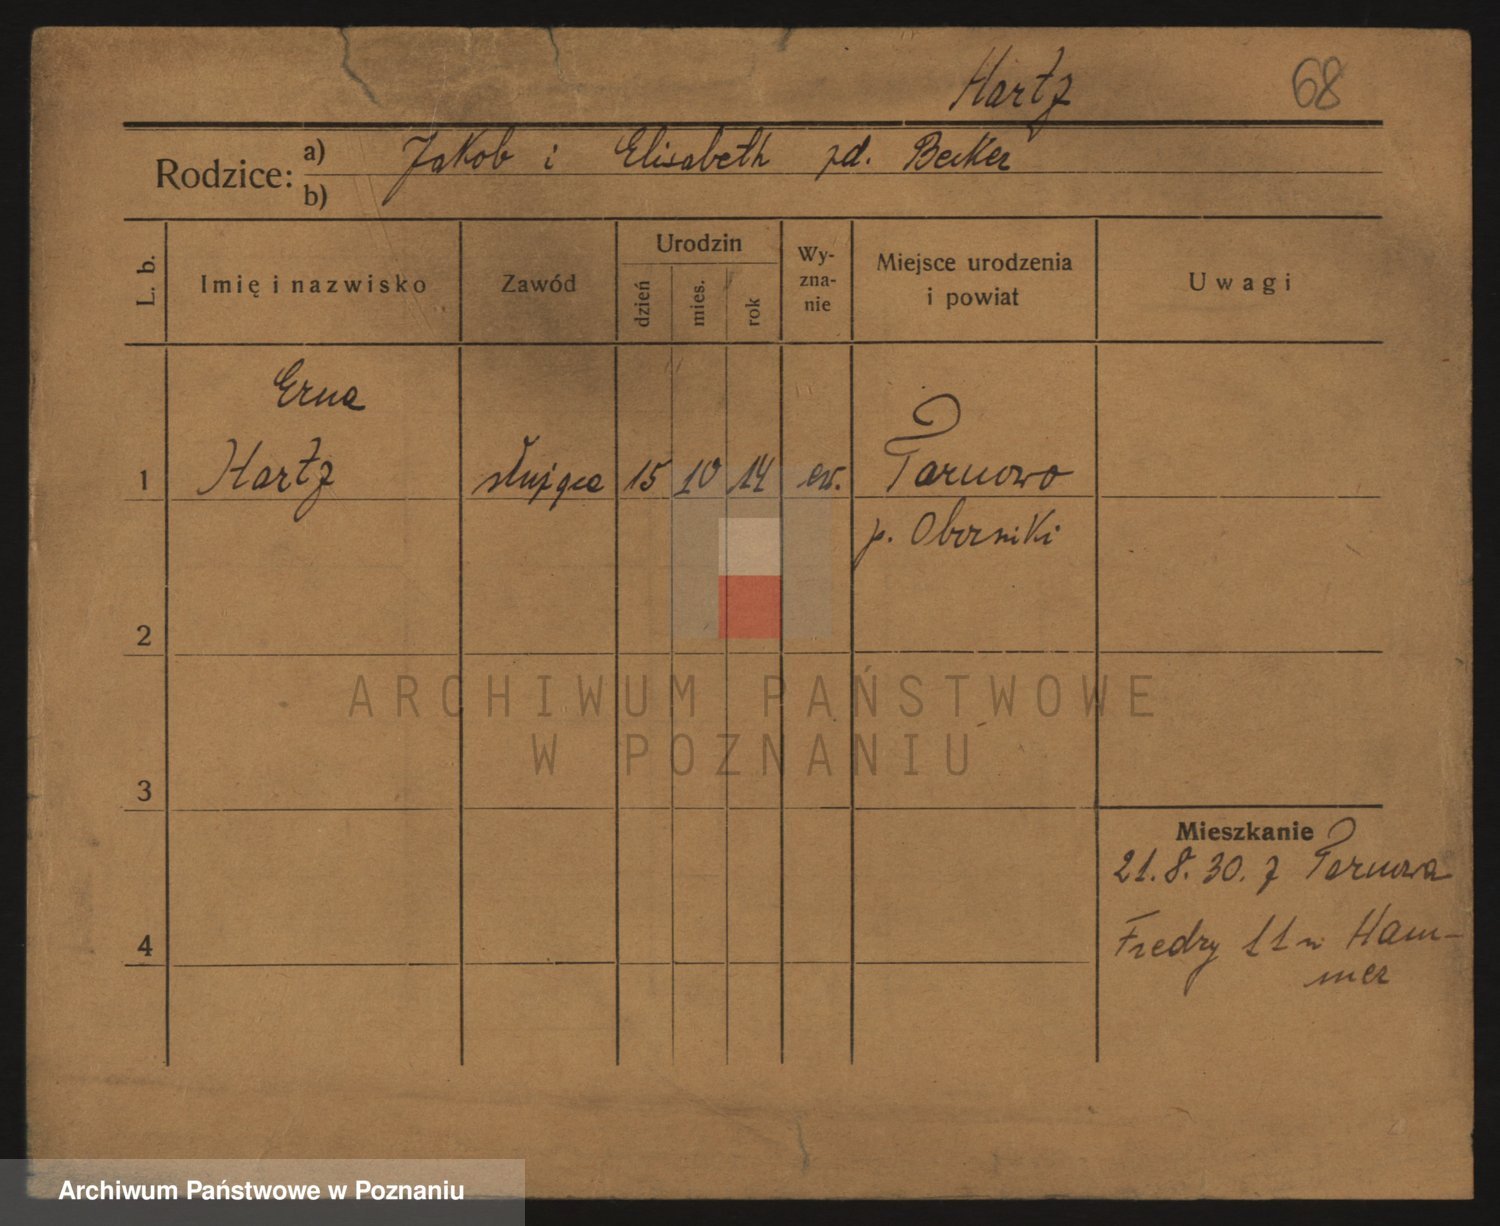 Hartz
68
Rodzice:
a) Jakob i Elisabeth zd. Becker
b)
L. b.
Imię i nazwisko
Zawód
Urodzin
dzień
mies.
rok
Wy-
zna-
nie
Miejsce urodzenia
i powiat
Uwagi
Erna
1 Hartz służąca 15 10 14 ew. Tarnowo
p. Oborniki
2
ARCHIWUM PAŃSTWOWE
W POZNANIU
3
Mieszkanie
21. 8. 30. z Tarnowa
4 Fredry 11 u Ham-
mer
Archiwum Państwowe w Poznaniu